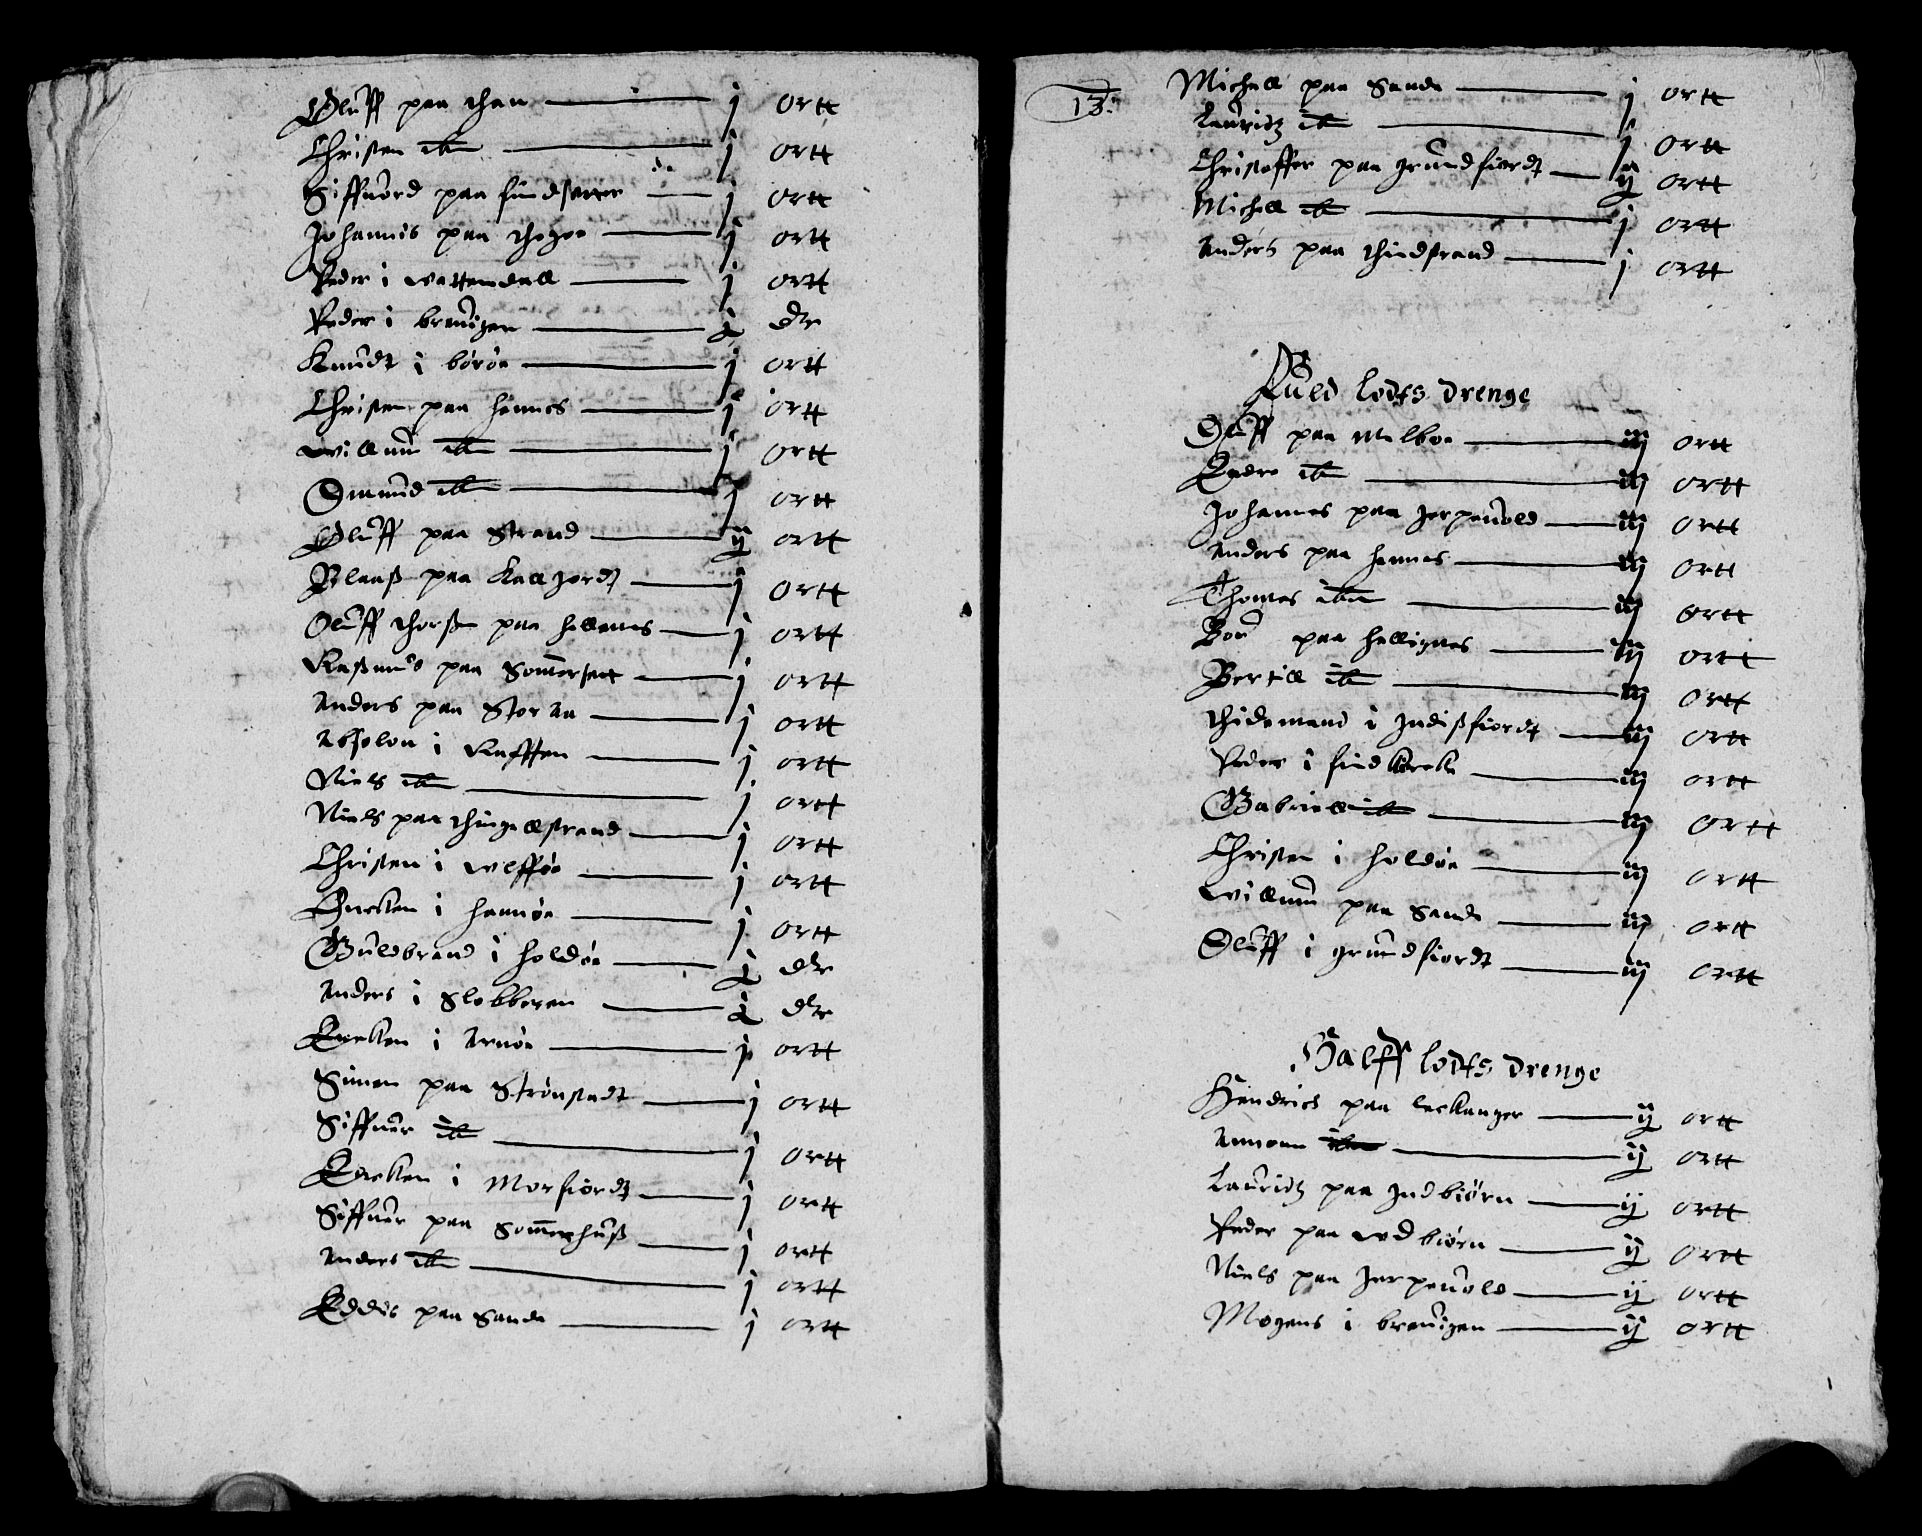 Oluff paa than j ortt
Christen ib j ortt
Siffuord paa findsetter j ortt
Johannis paa thogøe j ortt
Peder i wattendall j ortt
Peder i breuigen j dlr
Knudt i børøe j ortt
Christen paa hennes j ortt
Willum ib j ortt
Omund ib j ortt
Oluff paa Strand ij ortt
Claaß paa Kallgordt j ortt
Oluff thorßen paa hellenes j ortt
Raßmus paa Sommerset j ortt
Anders paa Stor aa j ortt
Absolon i Rafften j ortt
Niels ib j ortt
Niels paa thingelstrand j ortt
Christen i wlfføe j ortt
Encken i hannøe j ortt
Guldbrand i holdøe j dlr
Anders i Slobberen j dlr
Encken i Arnøe j ortt
Simen paa Strønstadt j ortt
Siffuer ib j ortt
Encken i Morfiordt j ortt
Siffuer paa Sommerhuß j ortt
Anders ib j ortt
Eddis paa Sande j ortt
13.
Michell paa Sande j ortt
Lauridz ib j ortt
Christoffer paa grundfiordt ij ortt
Michell ib j ortt
Anders paa thindstrand j ortt
Fuld lodts drenge
Oluff paa Melboe iij ortt
Endre ib iij ortt
Johannes paa Jerpeuold iij ortt
Anders paa hennes iij ortt
Thomes ibn iij ortt
paa hellignes iij ortt
Bertill ib iij ortt
thidemand i Indißfiordt iij ortt
Peder i iij ortt
Gabriell ib iij ortt
Christen i holdøe iij ortt
Willum paa Sande iij ortt
Oluff i grundfiordt iij ortt
Halff lodts drenge
Hendrich paa leckanger ij ortt
ij ortt
Lauridz paa Indbiørn ij ortt
Peder paa wdbiørn ij ortt
Niels paa Jerpeuold ij ortt
Mogens i breuigen ij ortt